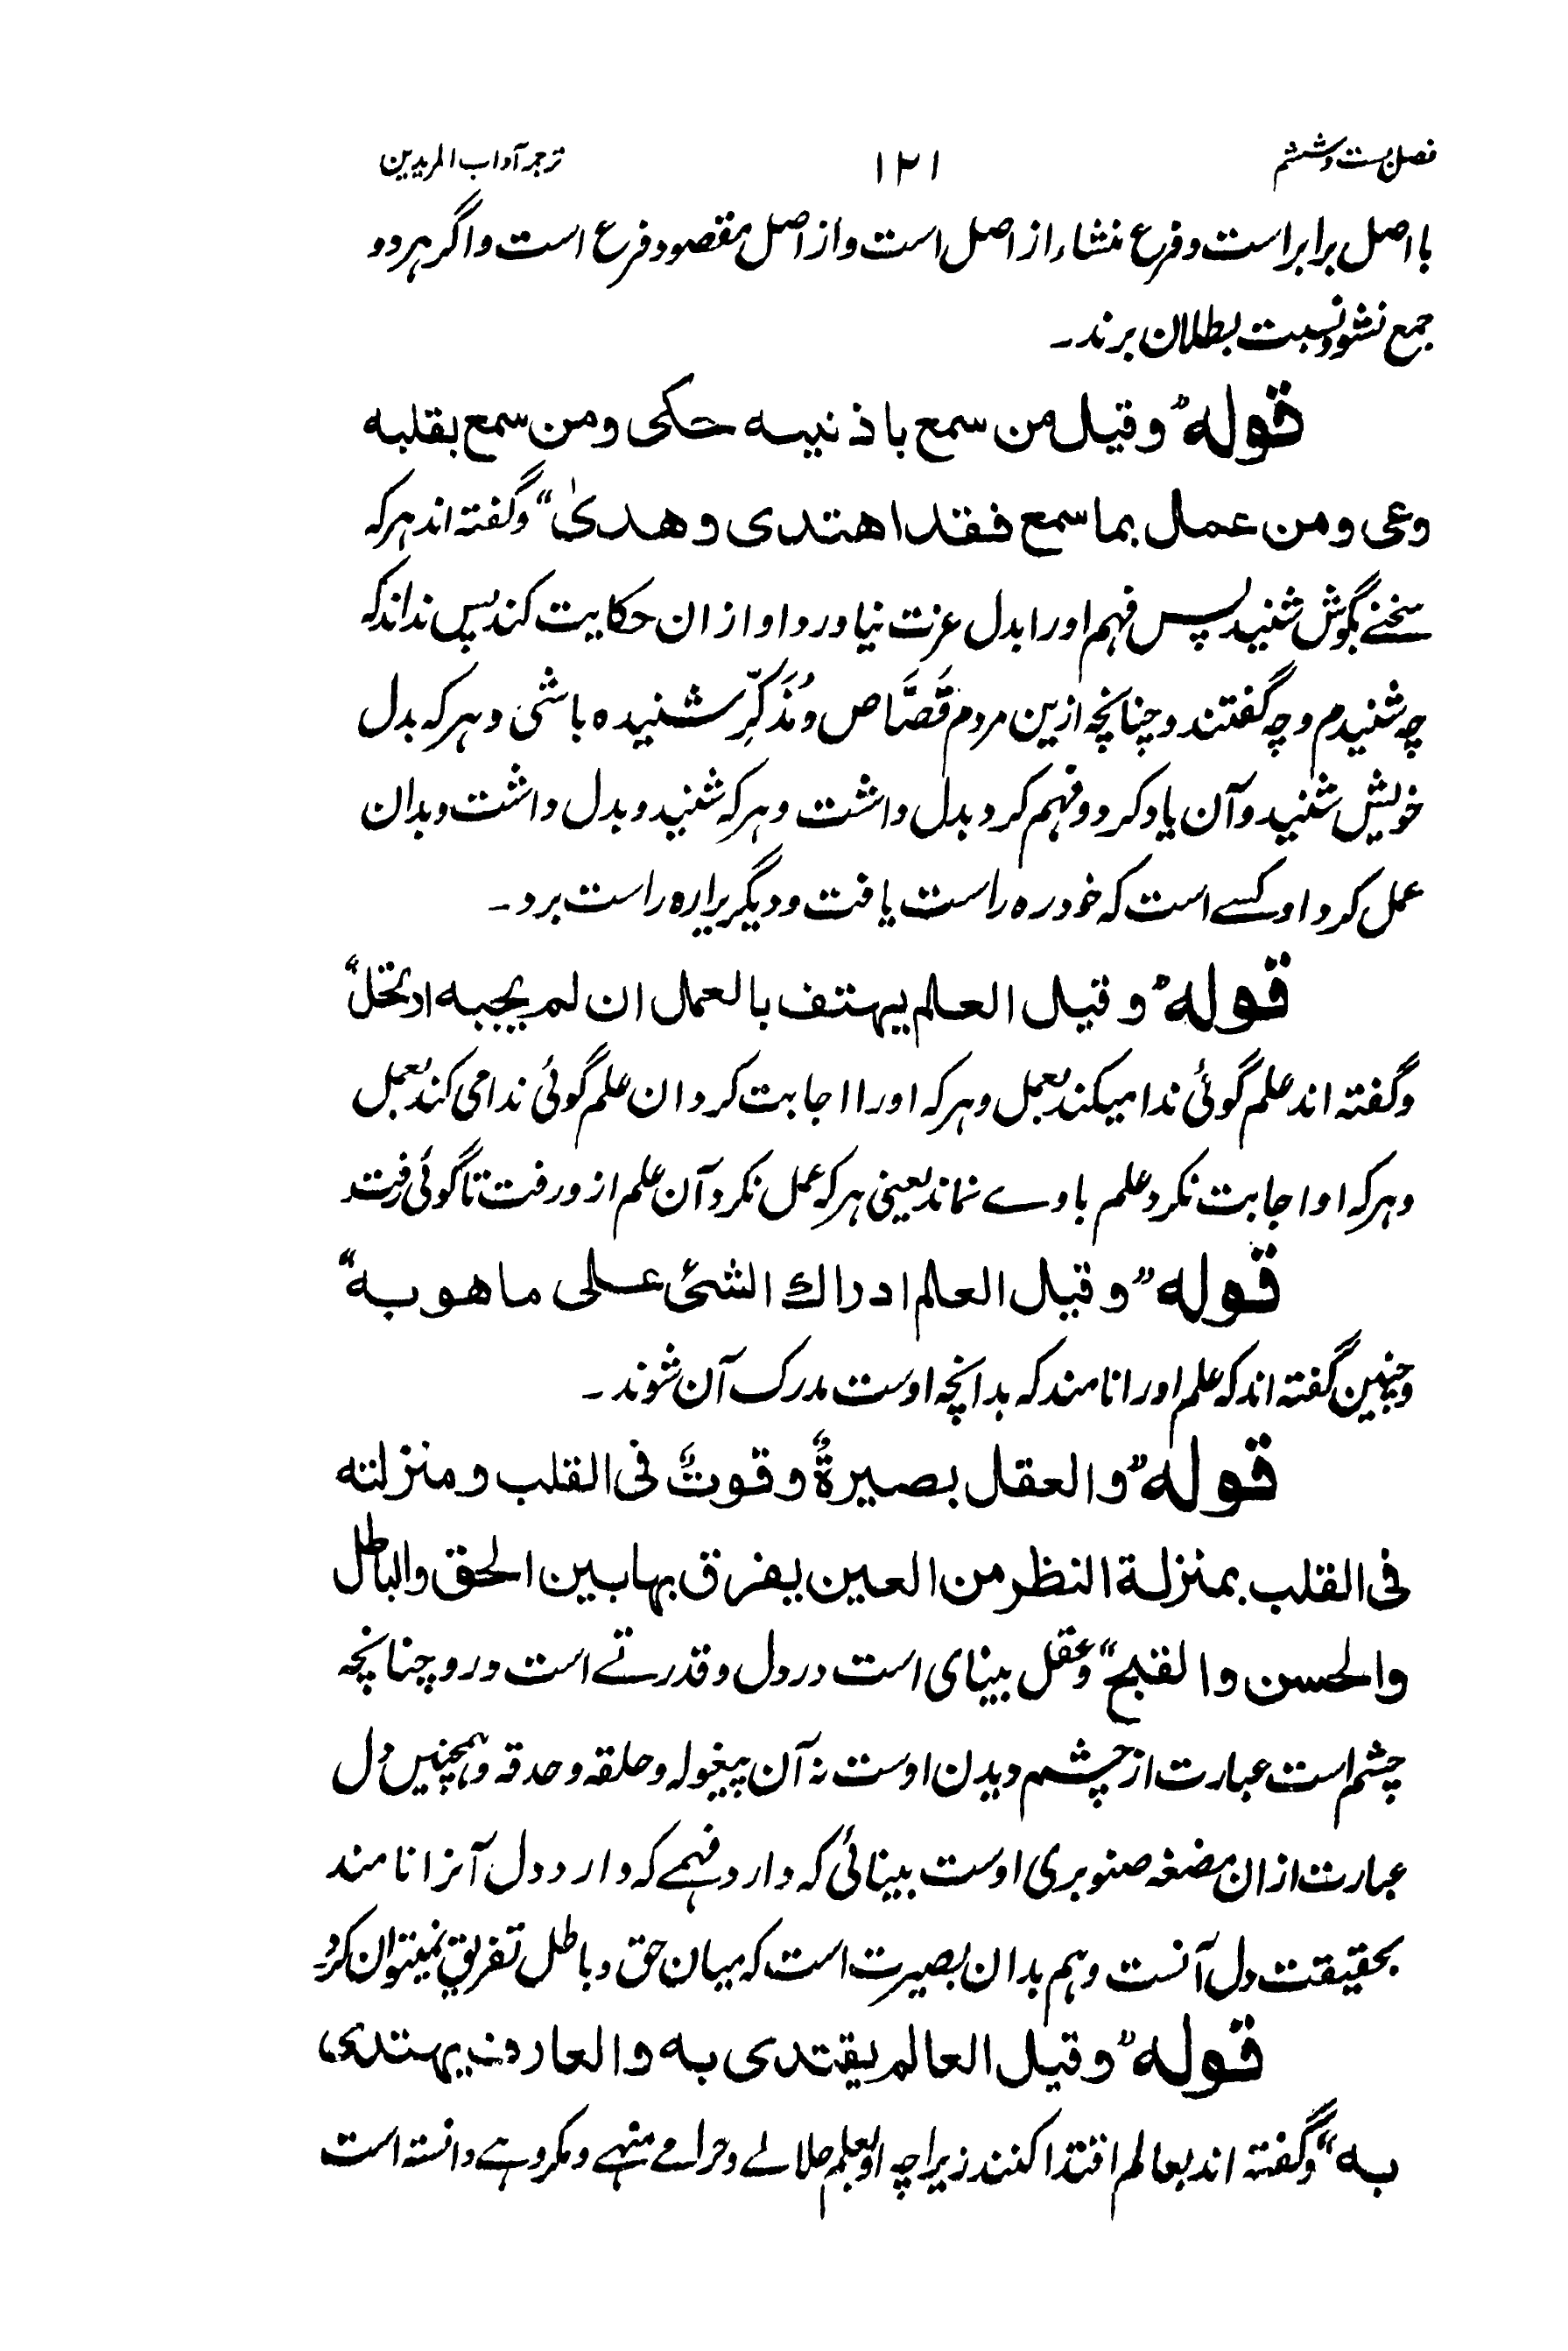 فصل بست و ششم ۱۲۱ ترجمہ آداب المریدین
با اصل برابر است و فرع منشاء از اصل است و از اصل مقصود فرع است و اگر هر دو
جمع نشود نسبت بطلان برند۔
قوله "وقيل من سمع باذنيه حكى ومن سمع بقلبه
وعى ومن عمل بما سمع فقد اهتدى وهدىٰ" و گفته اند هر که
سخنے بگوش شنید پس فهم اورا بدل عزت نیاورد او از ان حکایت کند پس نداند که
چه شنیدم و چه گفتند و چنانچه ازین مردم قَصَّاص و مُذَکِّر شنیده باشی و هر که بدل
خویش شنید و آن یاد کرد و فهم کرد بدل داشت و هر که شنید و بدل داشت و بدان
عمل کرد او کسے است که خود ره راست یافت و دیگریرا ره راست برد۔
قوله "وقيل العلم يهتف بالعمل ان لم يجبه ارتحل"
و گفته اند علم گوئی ندا میکند بعمل و هر که اورا اجابت کرد ان علم گوئی ندا می کند بعمل
و هر که او اجابت نکرد علم با وے نماند یعنی هر که عمل نکرد آن علم ازو رفت تا گوئی رفت
قوله "وقيل العلم ادراك الشئ على ما هو به"
و چنین گفته اند که علم اورا نامند که بدانچه اوست مدرک آن شوند۔
قوله "والعقل بصيرةٌ وقوتٌ فى القلب ومنزلته
فى القلب بمنزلة النظر من العين يفرق بها بين الحق والباطل
والحسن والقبح" و عقل بینای است در دل و قدرتے است درو چنانچه
چشم است عبارت از چشم دیدن اوست نه آن پیغوله و حلقه و حدقه و همچنیں دل
عبارت از ان مضغه صنوبری اوست بینائی که دارد فهمے که دارد دل آنرا نامند
بحقیقت دل آنست و هم بدان بصیرت است که میان حق و باطل تفریق نمیتوان کرد۔
قوله "وقيل العالم يقتدى به والعارف يهتدى
به" و گفته اند بعالم اقتدا کنند زیراچه او بعلم حلالے و حرامے منہیے و مکروہے دانسته است